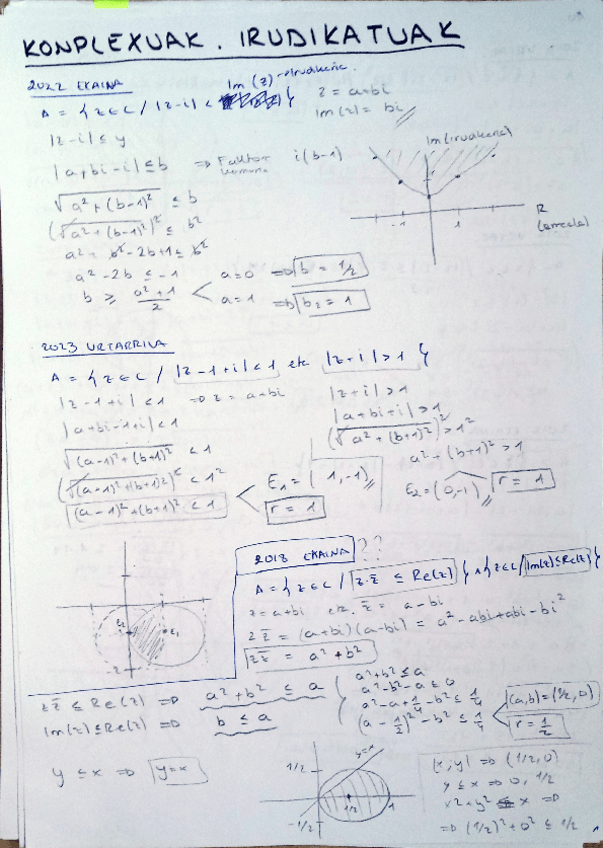 KONPLEXUAK. IRUDIKATUAK
2022 EKAINA
A = { z ∈ C / |z-i| < Im(z) }
z = a+bi
Im(z) = bi
|z-i| ≤ y
|a+bi-i| ≤ b ⇒ i(b-1)
√(a²+(b-1)²) ≤ b
(√(a²+(b-1)²))² ≤ b²
a² + b² - 2b+1 ≤ b²
a² - 2b ≤ -1
b ≥ (a²+1)/2
a=0 ⇒ b = 1/2
a=1 ⇒ b₂ = 1
Im (irudikaria)
R
(erreala)
-1 1
2023 URTARRILA
A = { z ∈ C / |z-1+i| < 1 eta |z+i| > 1 }
|z-1+i| < 1 ⇒ z = a+bi
|a+bi-1+i| < 1
√((a-1)²+(b+1)²) < 1
(√((a-1)²+(b+1)²))² < 1²
(a-1)²+(b+1)² < 1
E₁ = (1,-1)
r = 1
|z+i| > 1
|a+bi+i| > 1
(√(a²+(b+1)²))² > 1²
a²+(b+1)² > 1
E₂ = (0,-1)
r = 1
E₂ E₁
-1
-2
2018 EKAINA ??
A = { z ∈ C / z·z̄ ≤ Re(z) } ∧ { z ∈ C / Im(z) ≤ Re(z) }
z = a+bi eta z̄ = a-bi
z z̄ = (a+bi)(a-bi) = a² - abi + abi - bi²
z z̄ = a²+b²
z z̄ ≤ Re(z) ⇒ a²+b² ≤ a
Im(z) ≤ Re(z) ⇒ b ≤ a
a²+b² ≤ a
a²-b²-a ≤ 0
a²-a+1/4-b² ≤ 1/4
(a-1/2)²-b² ≤ 1/4
(a,b) = (1/2,0)
r = 1/2
y ≤ x ⇒ y=x
1/2
y=x
1/2 1
-1/2
|x,y| ⇒ (1/2,0)
y ≤ x ⇒ 0, 1/2
x²+y² ≤ x ⇒
⇒ (1/2)²+0² ≤ 1/2